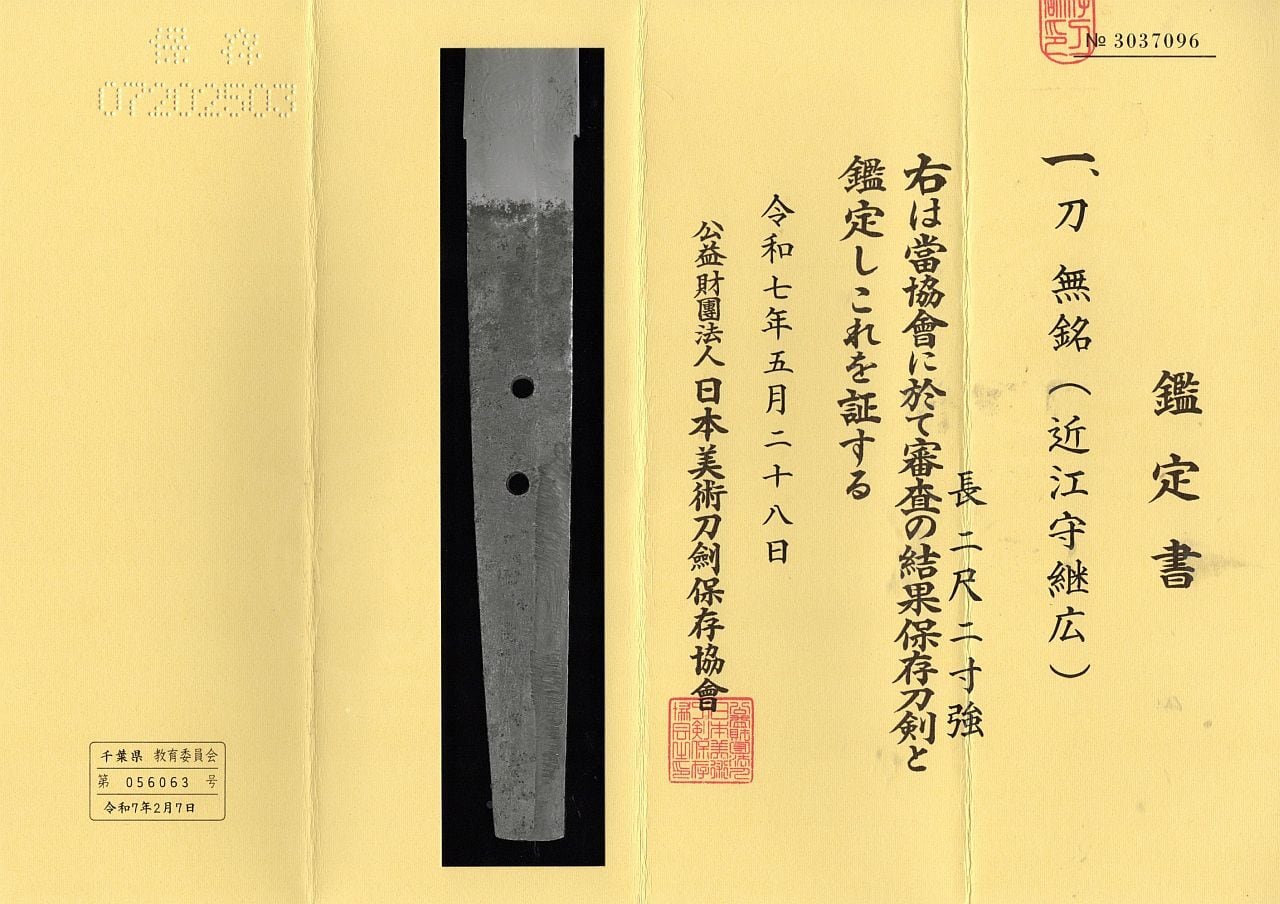 № 3037096
鑑定書
一、刀 無銘(近江守継広)
長 二尺二寸強
右は當協會に於て審査の結果保存刀剣と
鑑定しこれを証する
令和七年五月二十八日
公益財團法人 日本美術刀劍保存協會
保存
07202503
千葉県 教育委員会
第 056063 号
令和7年2月7日